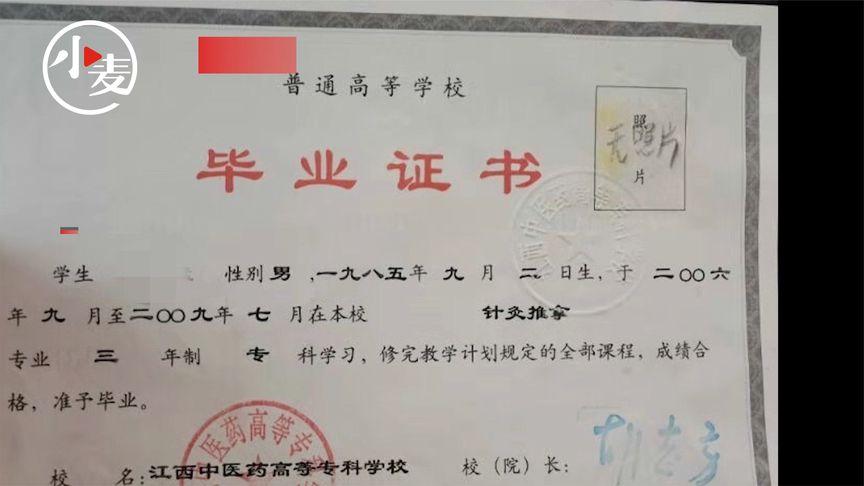 小麦
普通高等学校
毕业证书
照
无照片
片
江西中医药高等专科学校
学生 性别 男 ,一九八五年 九 月 二 日生, 于 二〇〇六
年 九 月至二〇〇九年 七 月在本校 针灸推拿
专业 三 年制 专 科学习, 修完教学计划规定的全部课程, 成绩合
格, 准予毕业。
医药高等专科
校 名: 江西中医药高等专科学校 校(院)长: